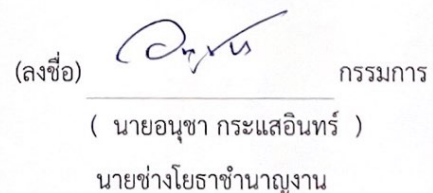 (ลงชื่อ) อนุชา กรรมการ
( นายอนุชา กระแสอินทร์ )
นายช่างโยธาชำนาญงาน